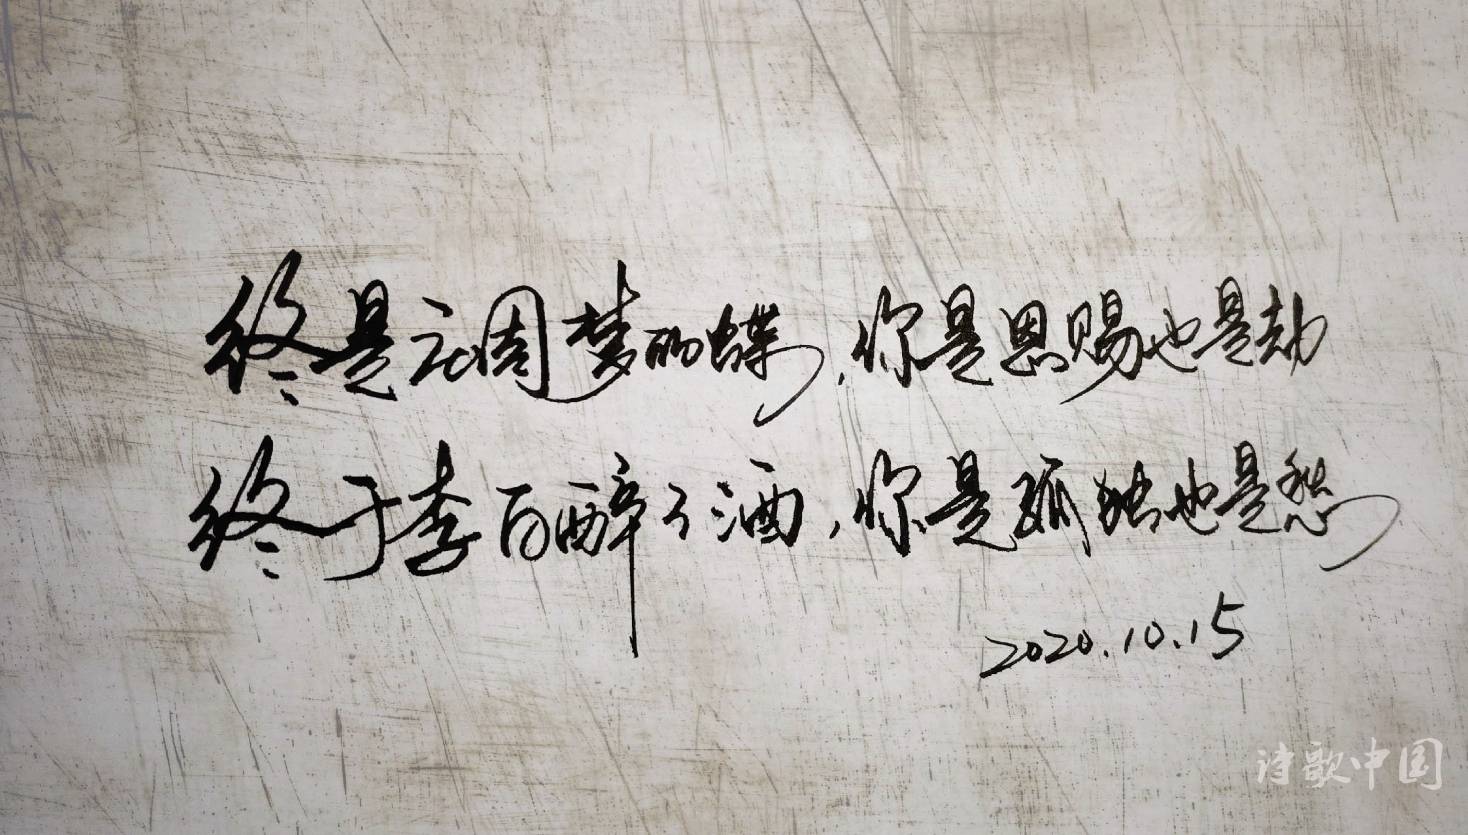 终是庄周梦的蝶，你是恩赐也是劫
终于李白醉了酒，你是孤独也是愁
2020.10.15
诗歌中国